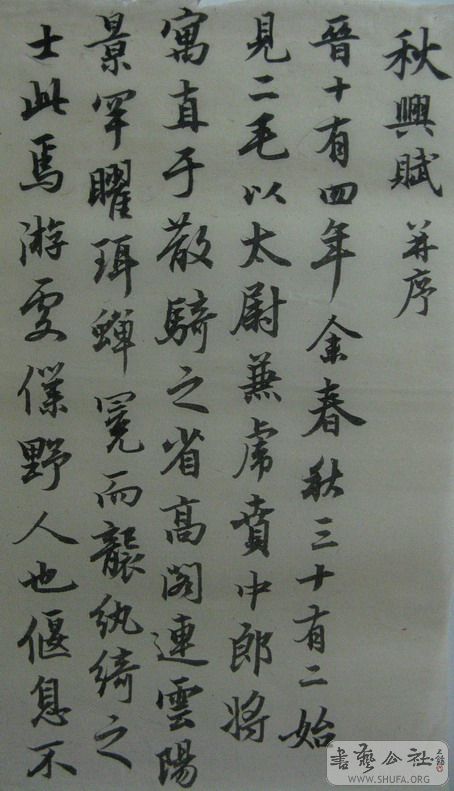 秋興賦 并序
晉十有四年余春秋三十有二始
見二毛以太尉兼虎賁中郎將
寓直于散騎之省高閣連雲陽
景罕曜珥蟬冕而襲紈綺之
士此焉游處僕野人也偃息不
書藝公社
WWW.SHUFA.ORG